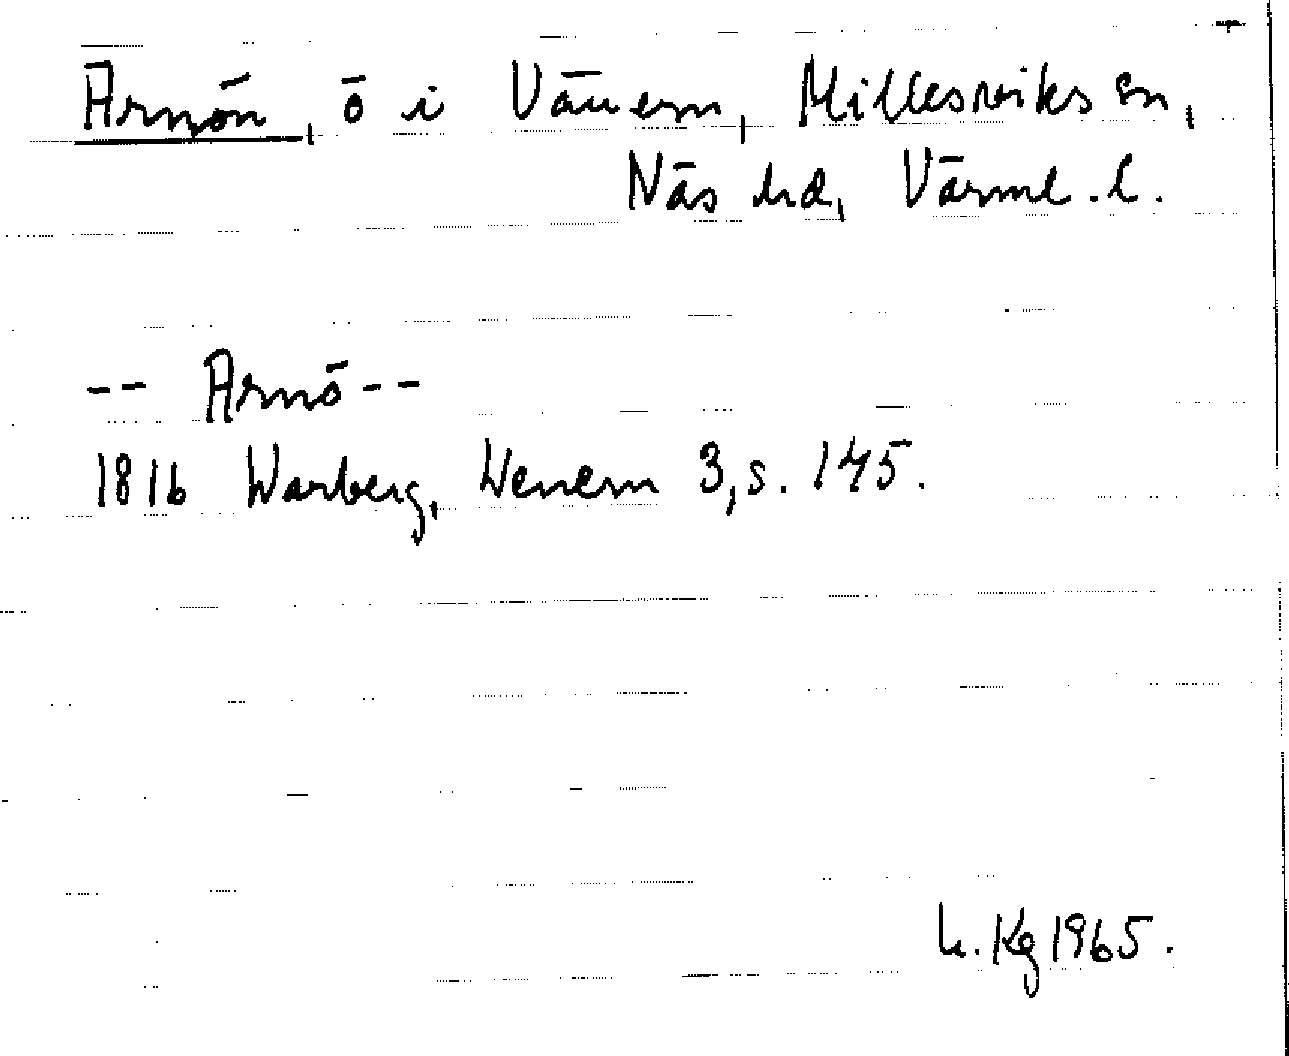 Arnön, ö i Vänern, Millesviks sn,
Näs hd, Värml. l.
-- Arnö --
1816 Warberg, Wenern 3, s. 145.
L. Kg 1965.